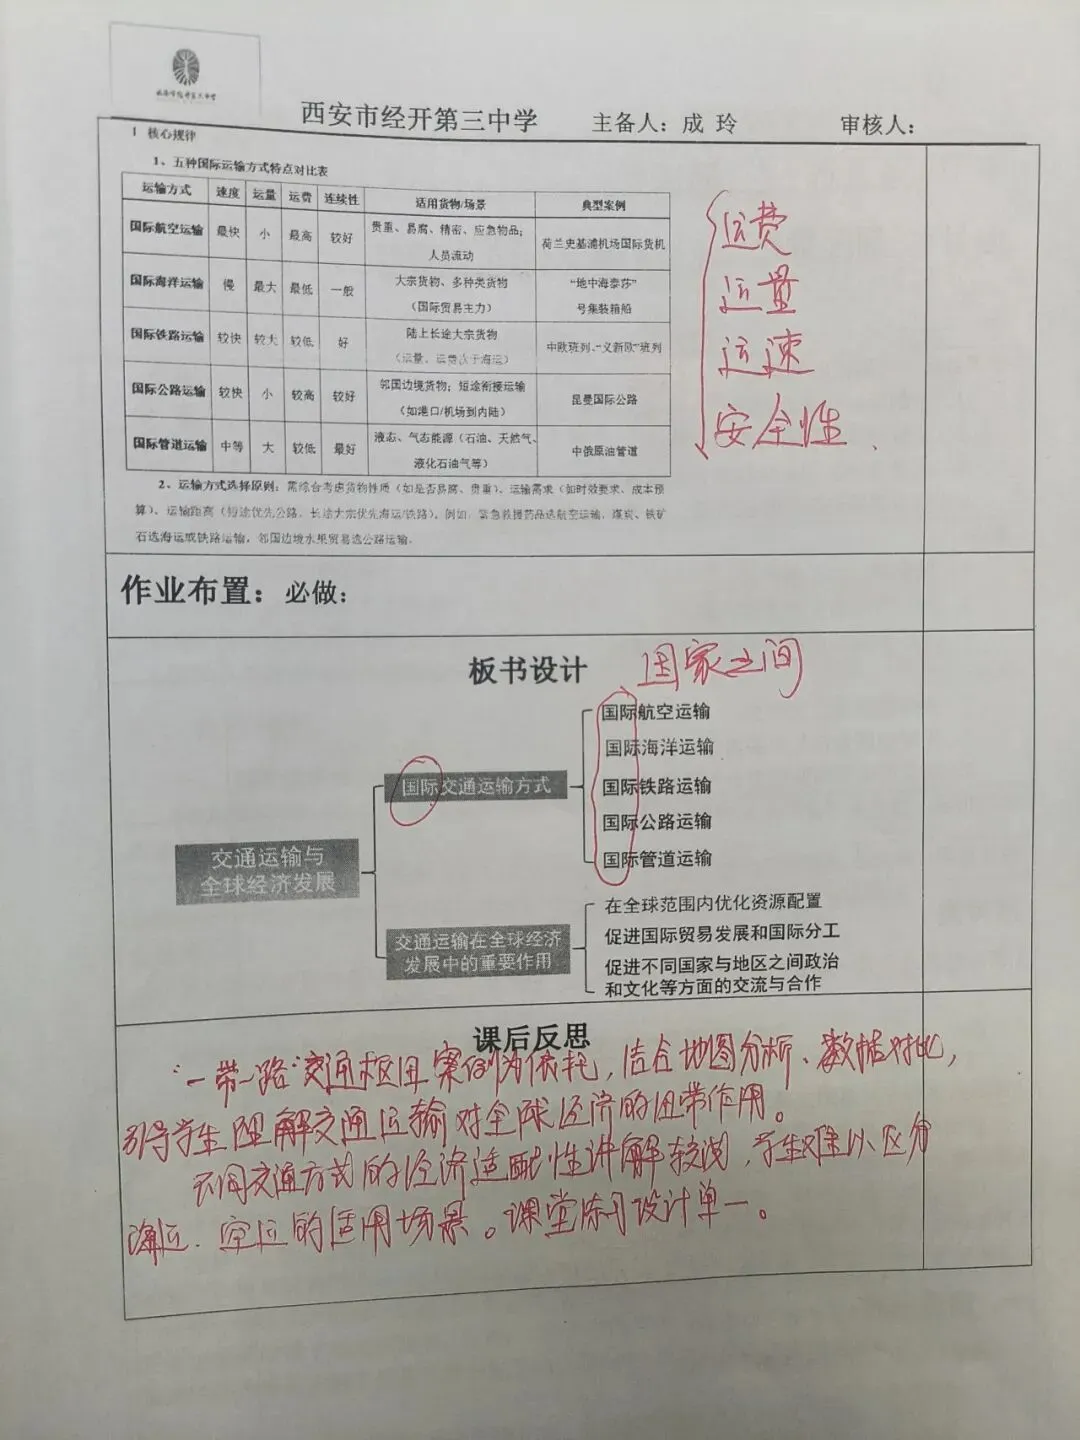 西安市经开第三中学 主备人：成 玲 审核人：
1 核心规律
1、五种国际运输方式特点对比表
运输方式 速度 运量 运费 连续性 适用货物/场景 典型案例
国际航空运输 最快 小 最高 较好 贵重、易腐、精密、应急物品；人员流动 荷兰史基浦机场国际货机
国际海洋运输 慢 最大 最低 一般 大宗货物、多种类货物（国际贸易主力） “地中海泰莎”号集装箱船
国际铁路运输 较快 较大 较低 好 陆上长途大宗货物（运量、运费次于海运） 中欧班列、“义新欧”班列
国际公路运输 较快 小 较高 较好 邻国边境货物；短途衔接运输（如港口/机场到内陆） 昆曼国际公路
国际管道运输 中等 大 较低 最好 液态、气态能源（石油、天然气、液化石油气等） 中俄原油管道
运费
运量
运速
安全性
2、运输方式选择原则：需综合考虑货物性质（如是否易腐、贵重）、运输需求（如时效要求、成本预
算）、运输距离（短途优先公路、长途大宗优先海运/铁路）。例如，紧急救援药品选航空运输，煤炭、铁矿
石选海运或铁路运输，邻国边境水果贸易选公路运输。
作业布置：必做：
板书设计
国家之间
交通运输与
全球经济发展
国际交通运输方式
国际航空运输
国际海洋运输
国际铁路运输
国际公路运输
国际管道运输
交通运输在全球经济
发展中的重要作用
在全球范围内优化资源配置
促进国际贸易发展和国际分工
促进不同国家与地区之间政治
和文化等方面的交流与合作
课后反思
“一带一路”交通枢纽案例为依托，结合地图分析、数据对比，
引导学生理解交通运输对全球经济的纽带作用。
不同交通方式的经济适配性讲解较浅，学生难以区分
海运、空运的适用场景。课堂练习设计单一。